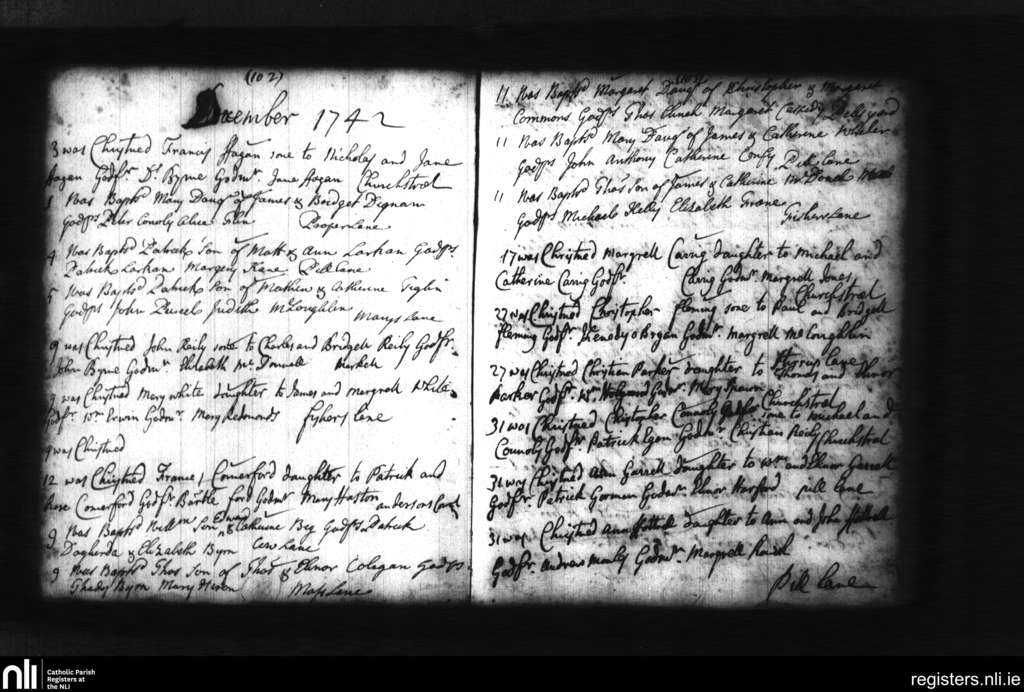 (102)
December 1742
3 was Christned Francis Hagan sone to Nicholas and Jane
Hagan Godfr. Dr. Byrne Godmr. Jane Hagan Churchstreet
1 Was Baptsd Mary Daugr of James & Bridget Dignam
Godps Peter Conoly Alice Proper Lane
4 Was Baptsd Patrick Son of Matt & Ann Larkan Godps.
Patrick Larkan Margery Kane Pill lane
5 Was Baptsd Patrick Son of Mathew & Catherine Tiglin
Godps John Purcel Judith McLoughlin Marys Lane
9 was Christned John Reily sone to Charles and Bridgett Reily Godfr.
John Byrne Godmr. Elizabeth Mc Donnell Markett
9 was Christned Mary white daughter to James and margrett White
Godfr. Wm Erwin Godmr. Mary Redmonds fishers lane
9 was Christned
12 was Christned Frances Comerford daughter to Patrick and
Rose Comerford Godfr. Bartle ford Godmr. Mary Haston
9 Was Baptsd Willm Son Edward & Catherine Beg Godps Patrick
Dogherda & Elizabeth Byrn Cow Lane
9 Was Baptsd Thos Son of Thos & Elinor Colegan Godps.
Thady Byrn Mary Hiron Mass Lane
(103)
11 Was Baptsd Margaret Daugr of Christopher & Margaret
Commons Godps Thos Clinch Margaret Cassidy
11 Was Baptsd Mary Daugr of James & Catherine Wheeler
Godps John Anthony Catherine Corfy Pill Lane
11 Was Baptsd Thos Son of James & Catherine McDonah
Godps Michael Kelly Elizabeth Frane Fishers Lane
17 was Christned Margrett Carrig daughter to Michael and
Catherine Carrig Godfr. Carrig Godmr. Margrett Jones
Churchstreet
27 was Christned Chrystopher Fleming sone to Paul and Bridgett
Fleming Godfr. Bryan Godmr. Margrett McLoughlin
27 was Christned Christian Parker daughter to Thomas and Elinor
Parker Godfr. Wm Godmr. Mary
Churchstreet
31 was Christned Chrystopher Connoly sone to Michael and
Connoly Godfr. Patrick Egan Godmr. Christian Reily Churchstreet
31 was Christned Ann Garrett daughter to Wm and Elinor Garrett
Godfr. Patrick Gorman Godmr. Elinor Horford pill lane
31 was Christned Ann daughter to Ann and John
Godfr. Andrew Godmr. Margrett
Pill lane
nli
Catholic Parish
Registers at
the NLI
registers.nli.ie